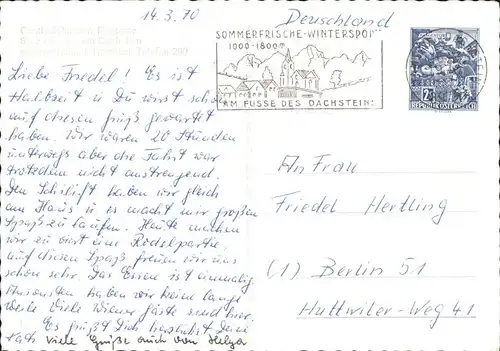 14.3.70
Deutschland
SOMMERFRISCHE-WINTERSPORT
1000-1800m
AM FUSSE DES DACHSTEIN!
2S
REPUBLIK ÖSTERREICH
Liebe Friedel! Es ist
Halbzeit u Du wirst schon
auf diesen Gruß gewartet
haben. Wir waren 20 Stunden
unterwegs aber die Fahrt war
trotzdem nicht anstrengend.
Den Schilift haben wir gleich
am Haus u es macht mir großen
Spaß zu laufen. Heute machen
wir zu viert eine Rodelpartie,
auf diesen Spaß freuen wir uns
schon sehr. Das Essen ist einmalig.
Ansonsten haben wir keine lange
Weile. Viele Wiener Gäste sind hier.
Es grüßt Dich herzlichst Deine
viele Grüße auch von Helga
An Frau
Friedel Hertling
(1) Berlin 51
Huttwiler-Weg 41